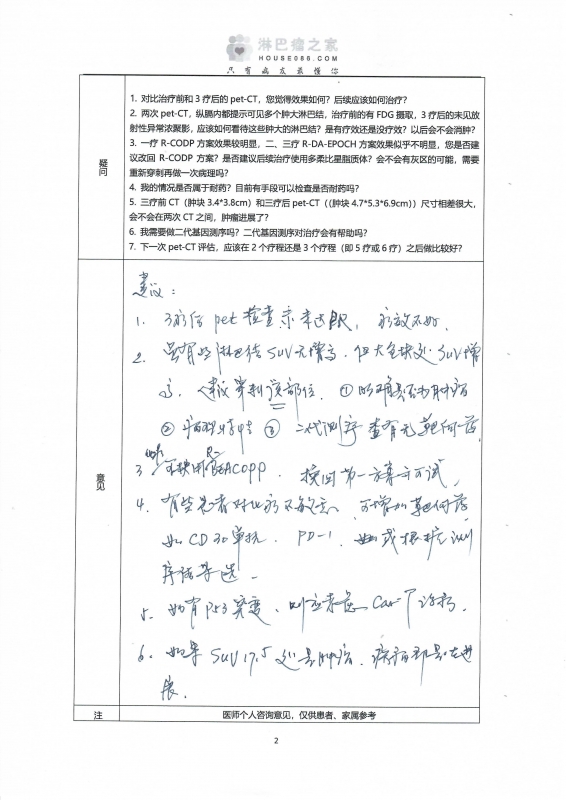 淋巴瘤之家
HOUSE086.COM
只有病友最懂你
疑问
1. 对比治疗前和 3 疗后的 pet-CT，您觉得效果如何？后续应该如何治疗？
2. 两次 pet-CT，纵膈内都提示可见多个肿大淋巴结，治疗前的有 FDG 摄取，3 疗后的未见放
射性异常浓聚影，应该如何看待这些肿大的淋巴结？是有疗效还是没疗效？以后会不会消肿？
3. 一疗 R-CODP 方案效果较明显，二、三疗 R-DA-EPOCH 方案效果似乎不明显，您是否建
议改回 R-CODP 方案？是否建议后续治疗使用多柔比星脂质体？会不会有灰区的可能，需要
重新穿刺再做一次病理吗？
4. 我的情况是否属于耐药？目前有手段可以检查是否耐药吗？
5. 三疗前 CT（肿块 3.4*3.8cm）和三疗后 pet-CT（（肿块 4.7*5.3*6.9cm））尺寸相差很大，
会不会在两次 CT 之间，肿瘤进展了？
6. 我需要做二代基因测序吗？二代基因测序对治疗会有帮助吗？
7. 下一次 pet-CT 评估，应该在 2 个疗程还是 3 个疗程（即 5 疗或 6 疗）之后做比较好？
意见
建议：
1. 3疗后 pet 检查示未达 PR，疗效不好.
2. 虽有的淋巴结SUV无增高，但大包块处SUV增
高，建议穿刺该部位. ① 明确是否为肿瘤
② 病理 ③ 二代测序 查有无靶向药.
3 可换用 R-BEACOPP. 换回第一方案亦可试.
4. 有些患者对化疗不敏感，可增加靶向药
如 CD30单抗. PD-1. 或根据测
序结果选.
5. 如有 P53 突变，则应考虑 Car-T 治疗.
6. 如果 SUV 17.5 处是肿瘤，病有可能是在进
展.
注
医师个人咨询意见，仅供患者、家属参考
2